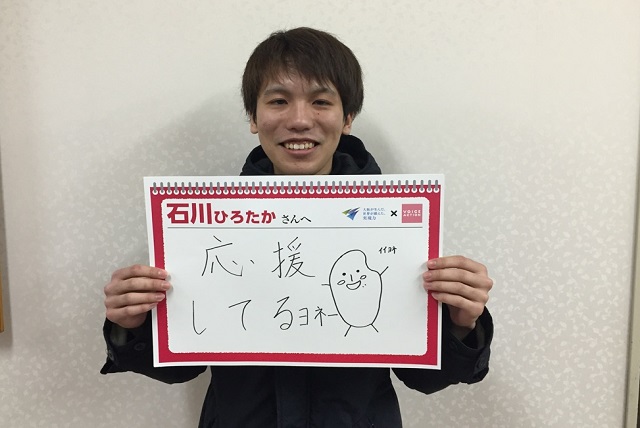 石川ひろたかさんへ
×
VOICE
応援
イイヨネ
してるヨネー